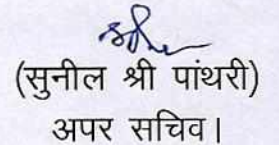 (सुनील श्री पांथरी)
अपर सचिव।